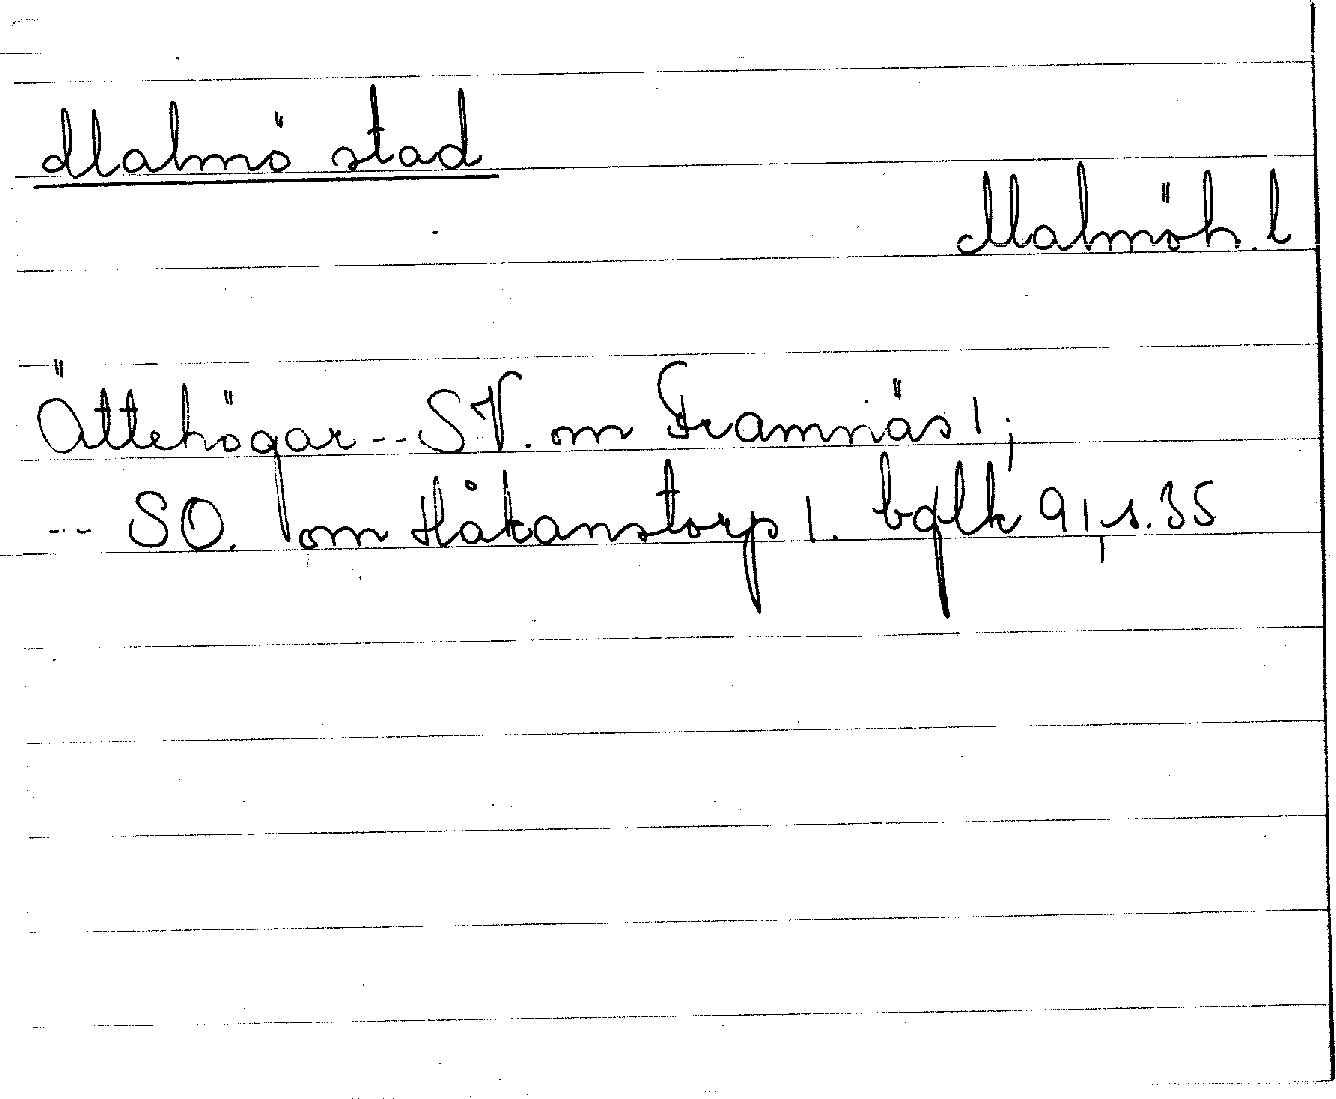 Malmö stad
Malmöh. l
Ättehögar -- SV. om Framnäs 1;
-- SO. om Håkanstorp 1. bglk 91, s. 35